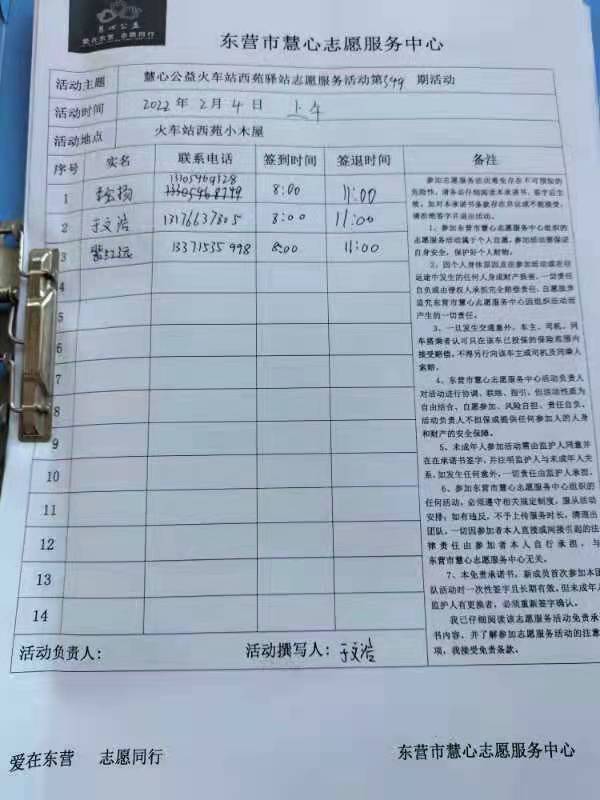 慧心公益
爱在东营 志愿同行
东营市慧心志愿服务中心
活动主题 慧心公益火车站西苑驿站志愿服务活动第549期活动
活动时间 2022年2月4日 上午
活动地点 火车站西苑小木屋
序号 实名 联系电话 签到时间 签退时间 备注
1 8:00 11:00
2 于文浩 13176637805 8:00 11:00
3 13371535998 8:00 11:00
4
5
6
7
8
9
10
11
12
13
14
参加志愿服务活动难免存在不可预知的
危险性,请务必仔细阅读本承诺书,签字后生
效。如对本承诺书条款存在异议或不能接受,
请拒绝签字并退出活动。
1、参加东营市慧心志愿服务中心组织的
志愿服务活动属于个人自愿,参加活动要保证
自身安全,保护好个人财物。
2、因个人身体原因及在参加活动或在往
返途中发生的任何人身或财产损害,一切责任
自负或由侵权人承担完全赔偿责任,自愿放弃
追究东营市慧心志愿服务中心因组织活动而
产生的一切责任。
3、一旦发生交通意外,车主、司机、同
车搭乘者认可只在该车已投保的保险范围内
接受赔偿,不得另行向该车主或司机及同乘人
索赔。
4、东营市慧心志愿服务中心活动负责人
对活动进行协调、联络、指引,但活动性质为
自由结合,自愿参加、风险自担、责任自负,
活动负责人不担保或提供任何参加人的人身
和财产的安全保障。
5、未成年人参加活动需由监护人同意并
在在承诺书签字,并注明监护人与未成年人关
系,如发生任何意外,一切责任由监护人承担。
6、参加东营市慧心志愿服务中心组织的
任何活动,必须遵守相关规定制度,服从活动
安排;如有违反,不予上传服务时长,清退出
团队,一切因参加者本人直接或间接引起的法
律责任由参加者本人自行承担,与
东营市慧心志愿服务中心无关。
7、本免责承诺书,新成员首次参加本团
队活动时一次性签字且长期有效,但未成年人
监护人有更换者,必须重新签字确认。
我已仔细阅读该志愿服务活动免责承
书内容,并了解参加志愿服务活动的注意
项,我接受免责条款。
活动负责人: 活动撰写人:于文浩
爱在东营 志愿同行 东营市慧心志愿服务中心